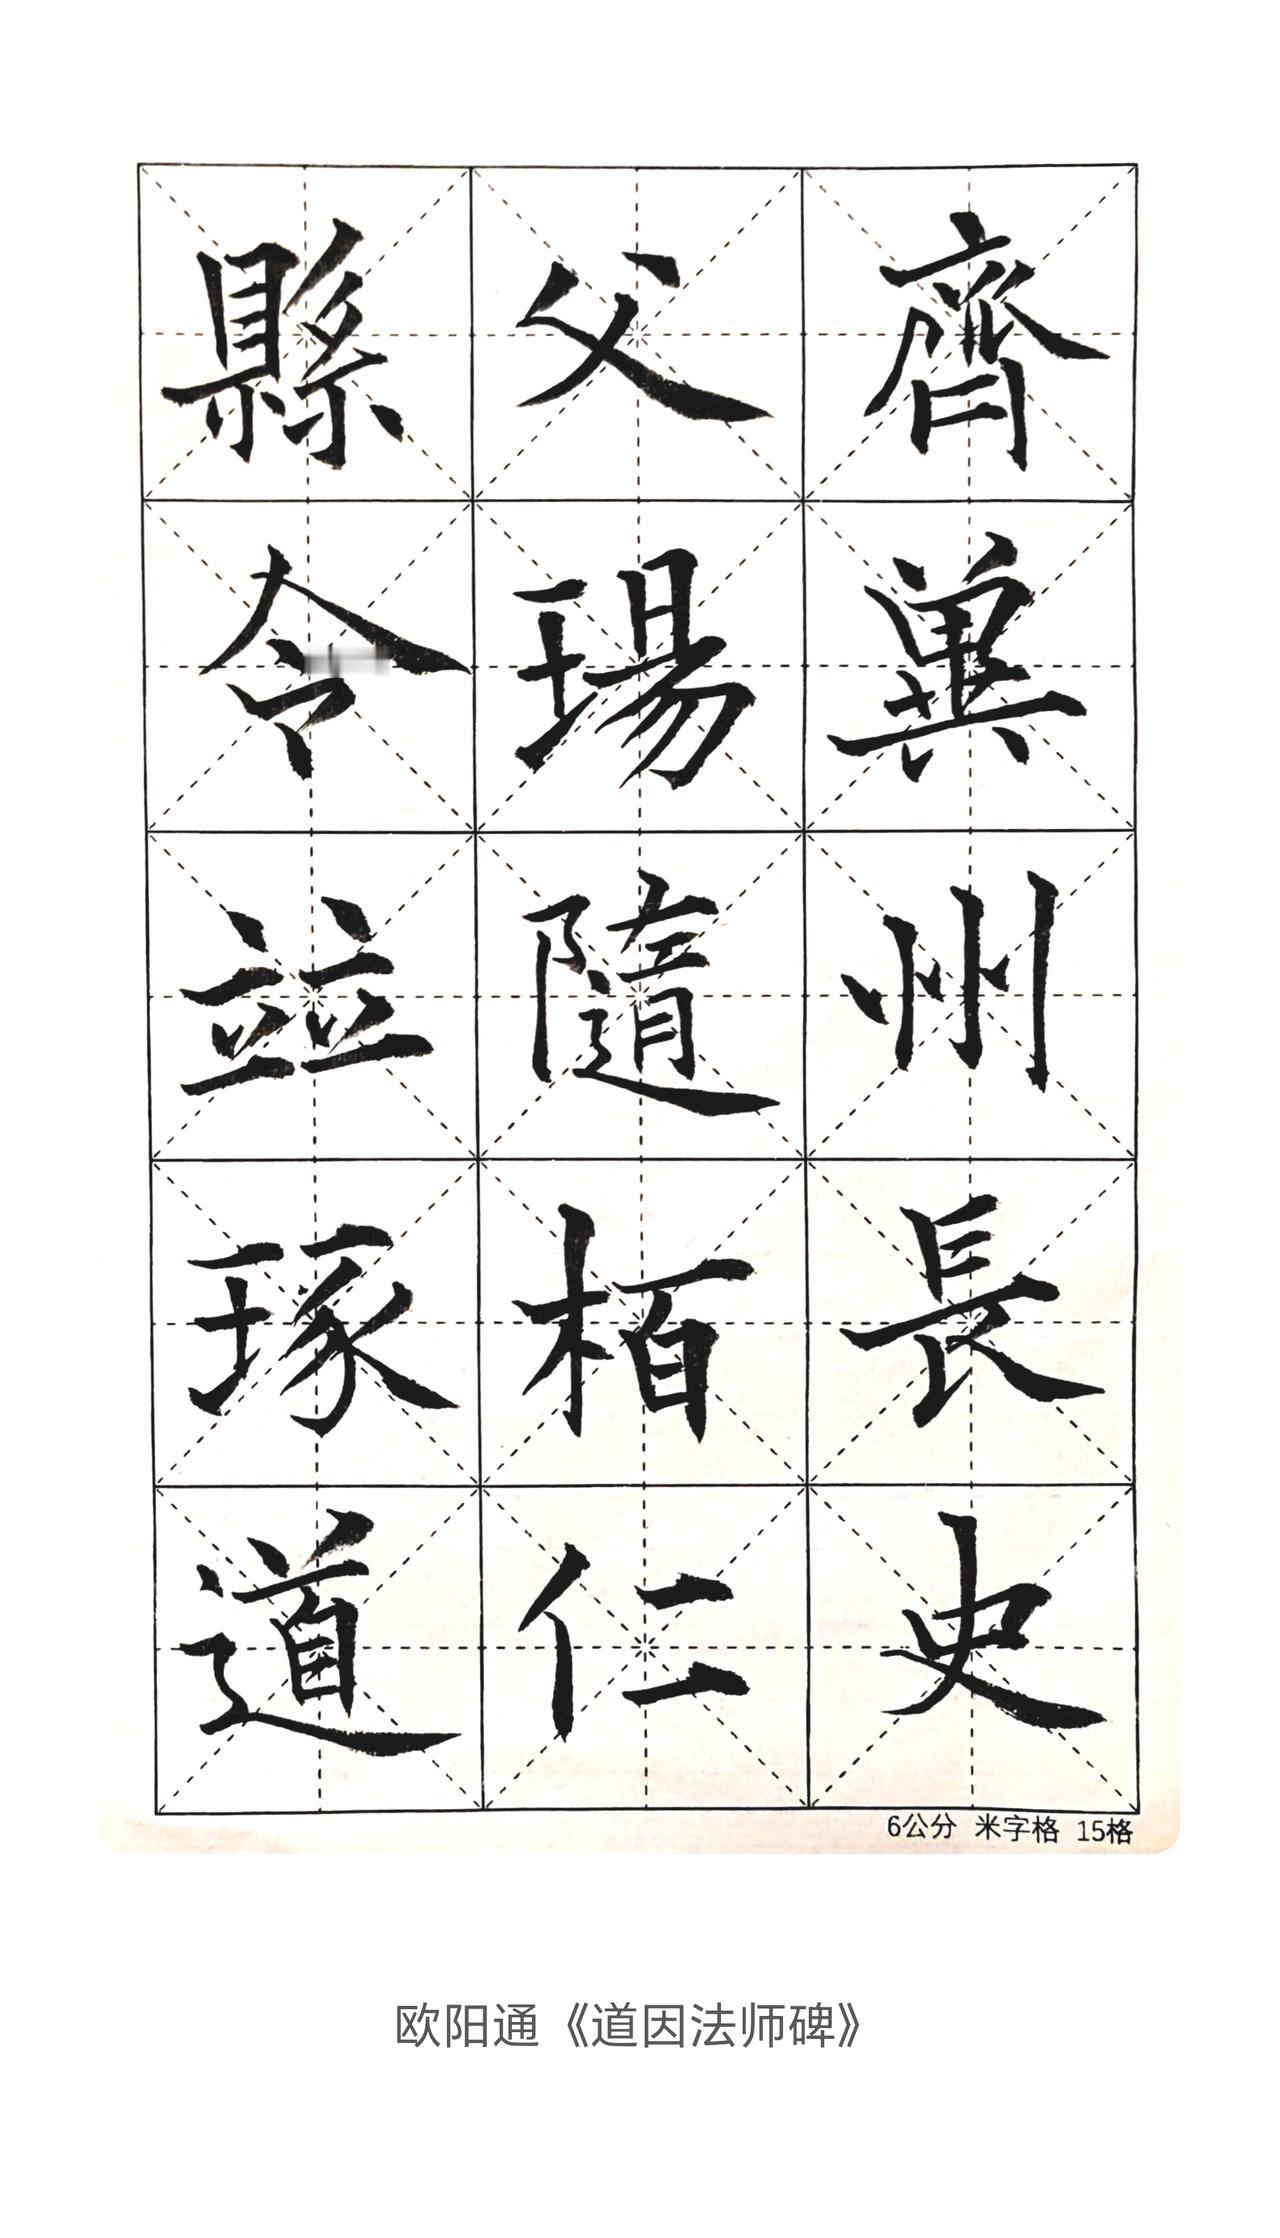 齊冀州長史
父瑒隨栢仁
縣令竝琢道
6公分 米字格 15格
欧阳通《道因法师碑》